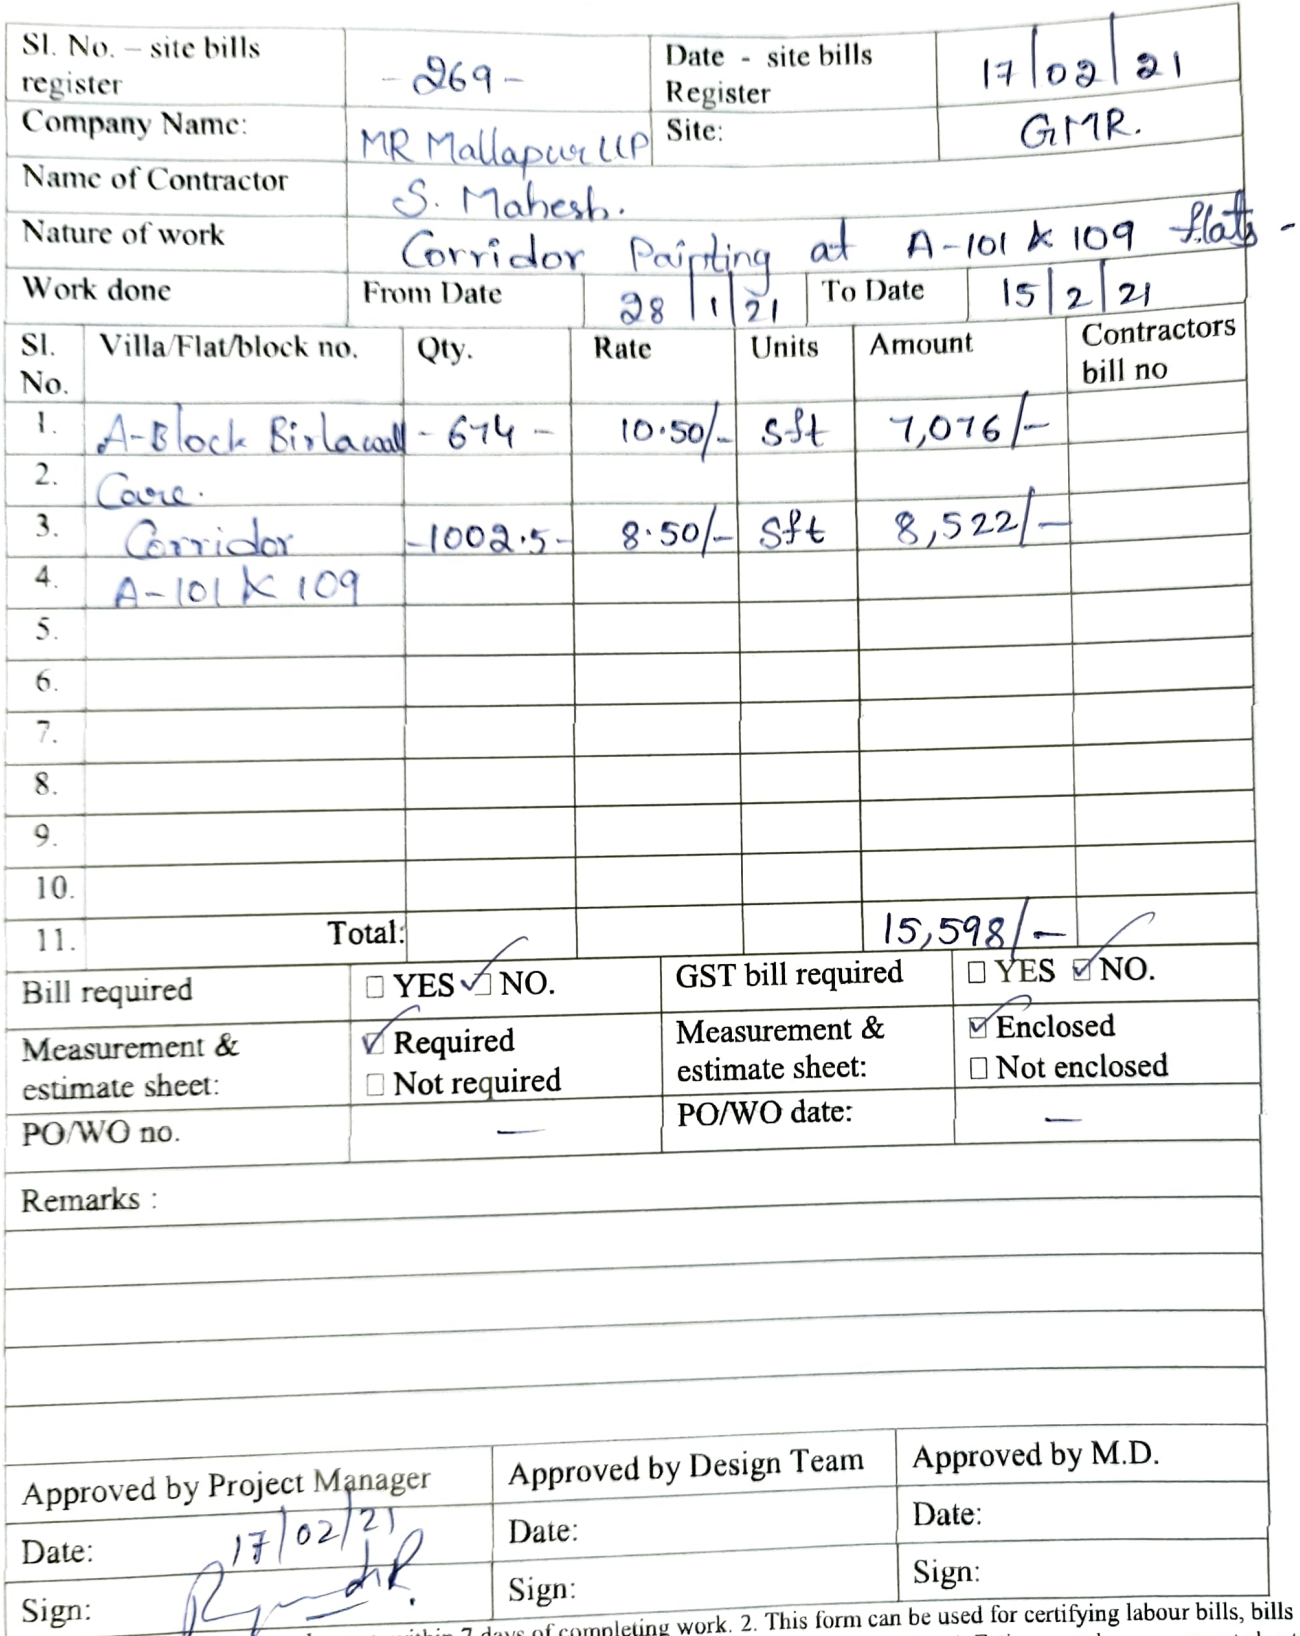 Sl. No. – site bills register - 269 - Date - site bills Register 17/02/21
Company Name: MR Mallapur LLP Site: GMR.
Name of Contractor S. Mahesh.
Nature of work Corridor Painting at A-101 & 109 flats -
Work done From Date 28/1/21 To Date 15/2/21
Sl. No. Villa/Flat/block no. Qty. Rate Units Amount Contractors bill no
1. A-Block Birlawall - 674 - 10.50/- Sft 7,076/-
2. Care.
3. Corridor -1002.5- 8.50/- Sft 8,522/-
4. A-101 & 109
5.
6.
7.
8.
9.
10.
11. Total: 15,598/-
Bill required ☐ YES ☑ NO. GST bill required ☐ YES ☑ NO.
Measurement & estimate sheet: ☑ Required ☐ Not required Measurement & estimate sheet: ☑ Enclosed ☐ Not enclosed
PO/WO no. — PO/WO date: —
Remarks :
Approved by Project Manager Approved by Design Team Approved by M.D.
Date: 17/02/21 Date: Date:
Sign: Sign: Sign:
7 days of completing work. 2. This form can be used for certifying labour bills, bills